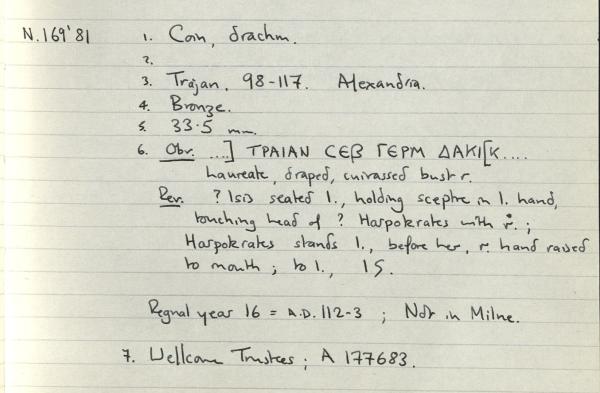 N.169'81 1. Coin, drachm.
2.
3. Trajan. 98-117. Alexandria.
4. Bronze.
5. 33.5 mm.
6. Obv. ....] ΤΡΑΙΑΝ CΕβ ΓΕΡΜ ΔΑΚΙ[Κ....
laureate, draped, cuirassed bust r.
Rev. ? Isis seated l., holding sceptre in l. hand,
touching head of ? Harpokrates with r.;
Harpokrates stands l., before her, r. hand raised
to mouth; to l., ΙS.
Regnal year 16 = A.D. 112-3; Not in Milne.
7. Wellcome Trustees; A 177683.